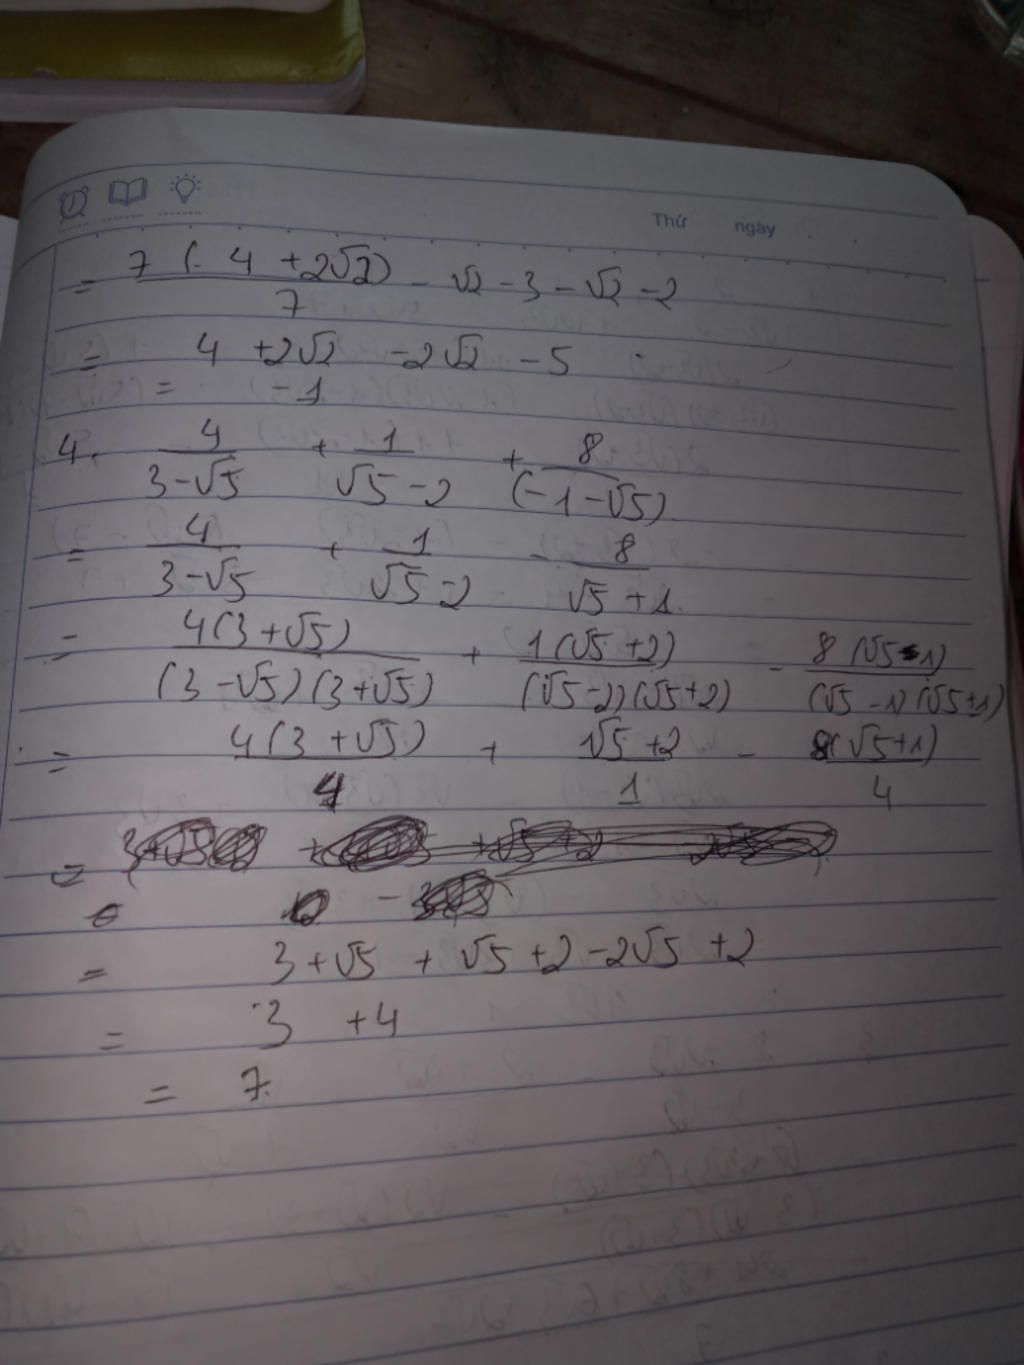 Thứ ngày
= 7 (- 4 + 2√2) / 7 - √2 - 3 - √2 - 2
= 4 + 2√2 - 2√2 - 5
= - 1
4. 4 / (3 - √5) + 1 / (√5 - 2) + 8 / (-1 - √5)
= 4 / (3 - √5) + 1 / (√5 - 2) - 8 / (√5 + 1)
= 4(3 + √5) / (3 - √5)(3 + √5) + 1(√5 + 2) / (√5 - 2)(√5 + 2) - 8(√5 - 1) / (√5 - 1)(√5 + 1)
= 4(3 + √5) / 4 + √5 + 2 / 1 - 8(√5 + 1) / 4
= 3 + √5 + √5 + 2 - 2√5 + 2
= 3 + 4
= 7